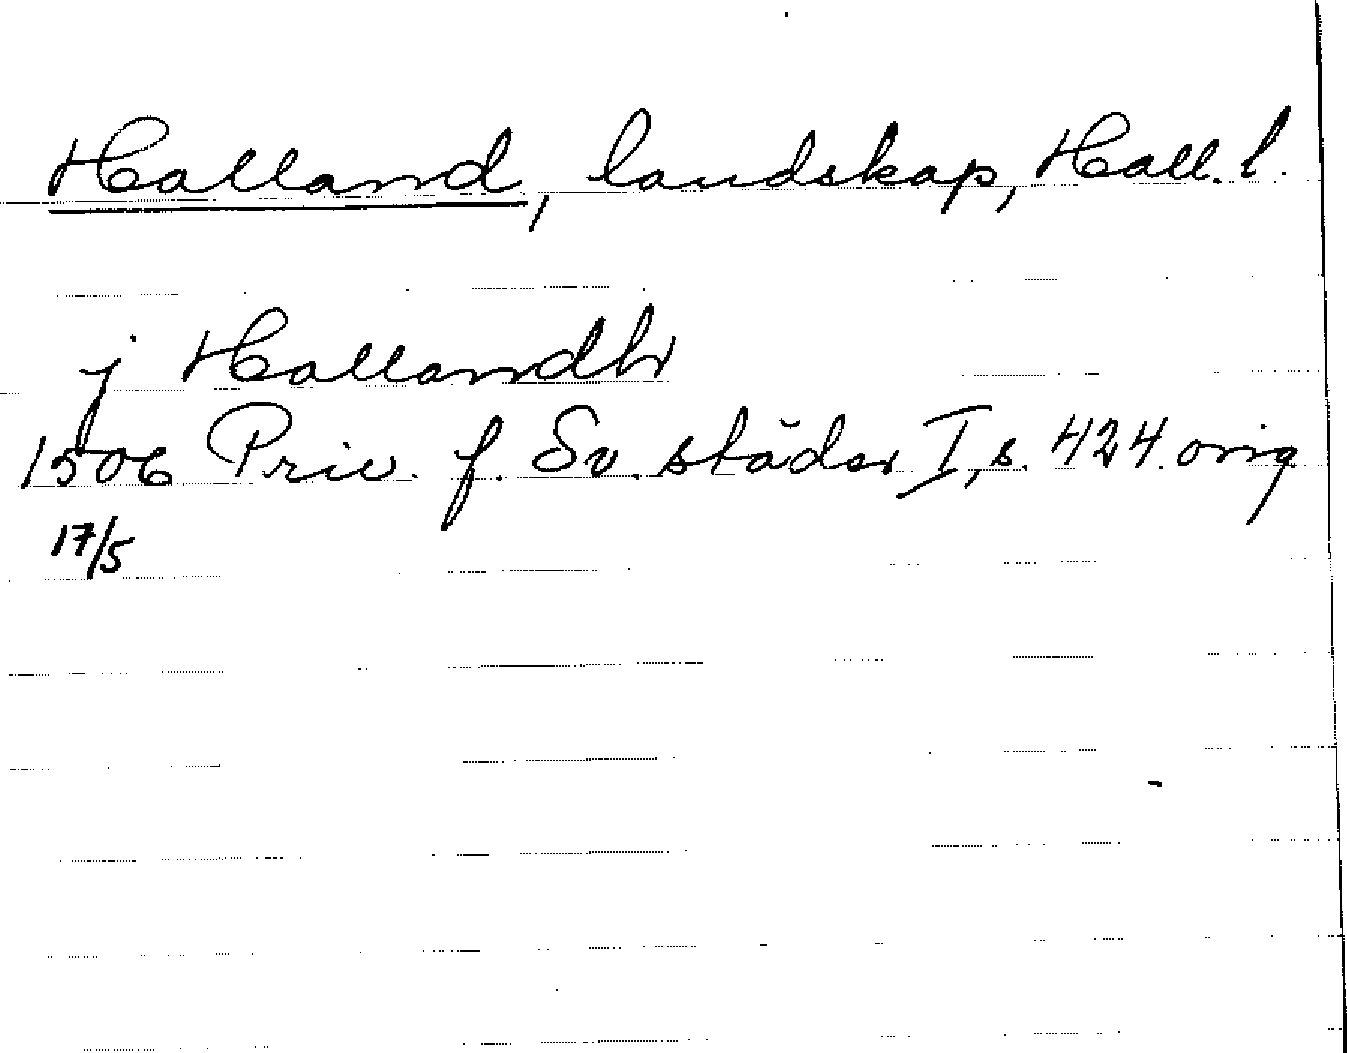 Halland, landskap, Hall. l.
j Hallandh
1506 Priv. f. Sv. städer I, s. 424. orig
17/5